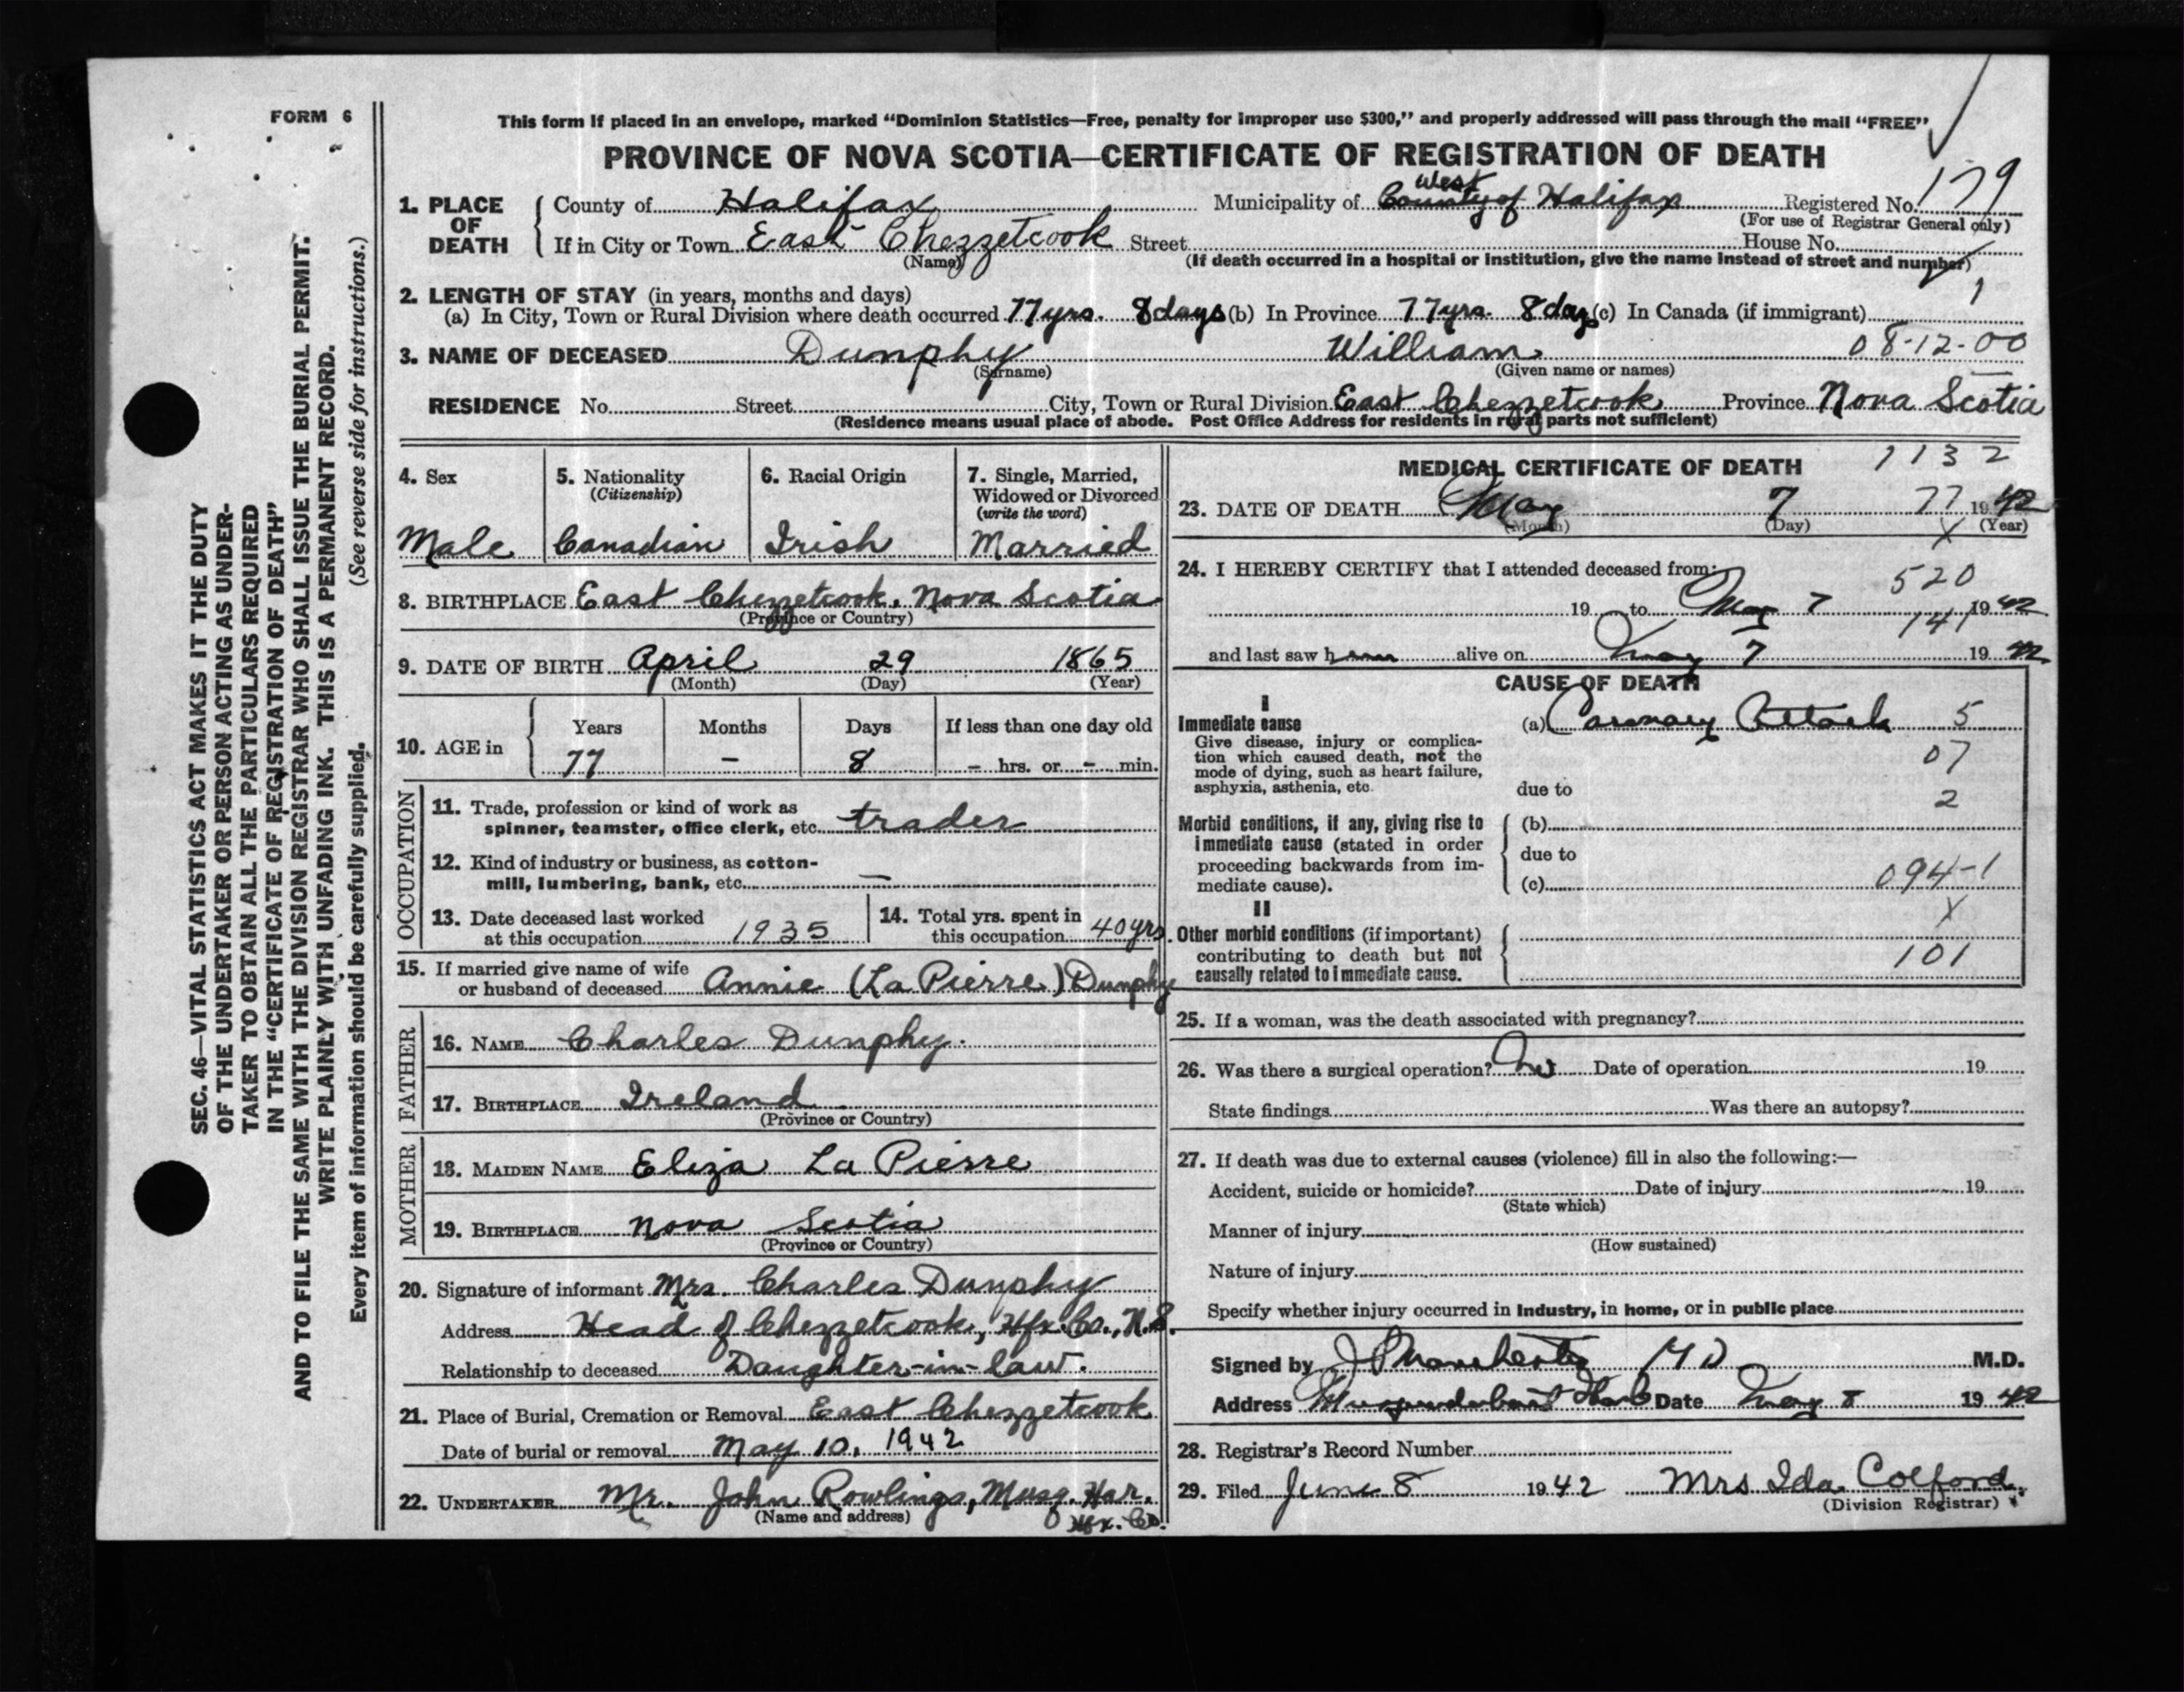 FORM 6
This form if placed in an envelope, marked “Dominion Statistics—Free, penalty for improper use $300,” and properly addressed will pass through the mail “FREE”
PROVINCE OF NOVA SCOTIA—CERTIFICATE OF REGISTRATION OF DEATH
1. PLACE OF DEATH
County of Halifax Municipality of West County of Halifax Registered No. 179
(For use of Registrar General only)
If in City or Town East Chezzetcook Street House No.
(Name) (If death occurred in a hospital or institution, give the name instead of street and number)
2. LENGTH OF STAY (in years, months and days) 1
(a) In City, Town or Rural Division where death occurred 77 yrs. 8 days (b) In Province 77 yrs. 8 days (c) In Canada (if immigrant)
3. NAME OF DECEASED Dunphy William 08-12-00
(Surname) (Given name or names)
RESIDENCE No. Street City, Town or Rural Division East Chezzetcook Province Nova Scotia
(Residence means usual place of abode. Post Office Address for residents in rural parts not sufficient)
4. Sex
Male
5. Nationality
(Citizenship)
Canadian
6. Racial Origin
Irish
7. Single, Married,
Widowed or Divorced
(write the word)
Married
8. BIRTHPLACE East Chezzetcook, Nova Scotia
(Province or Country)
9. DATE OF BIRTH April 29 1865
(Month) (Day) (Year)
10. AGE in
Years Months Days If less than one day old
77 - 8 - hrs. or - min.
OCCUPATION
11. Trade, profession or kind of work as
spinner, teamster, office clerk, etc. trader
12. Kind of industry or business, as cotton-
mill, lumbering, bank, etc. —
13. Date deceased last worked
at this occupation 1935
14. Total yrs. spent in
this occupation 40 yrs.
15. If married give name of wife
or husband of deceased Annie (La Pierre) Dunphy
FATHER
16. NAME Charles Dunphy.
17. BIRTHPLACE Ireland
(Province or Country)
MOTHER
18. MAIDEN NAME Eliza La Pierre
19. BIRTHPLACE Nova Scotia
(Province or Country)
20. Signature of informant Mrs. Charles Dunphy
Address Head of Chezzetcook, Hfx. Co., N.S.
Relationship to deceased Daughter-in-law.
21. Place of Burial, Cremation or Removal East Chezzetcook
Date of burial or removal May 10, 1942
22. UNDERTAKER Mr. John Rowlings, Musq. Har.
(Name and address) Hfx. Co.
MEDICAL CERTIFICATE OF DEATH 1132
23. DATE OF DEATH May 7 77 1942
(Month) (Day) X (Year)
24. I HEREBY CERTIFY that I attended deceased from: 520
19 to May 7 1942
141
and last saw him alive on May 7 19 42
CAUSE OF DEATH
I
Immediate cause (a) Coronary Attack 5
Give disease, injury or complica-
tion which caused death, not the 07
mode of dying, such as heart failure,
asphyxia, asthenia, etc. due to 2
Morbid conditions, if any, giving rise to (b)
immediate cause (stated in order due to
proceeding backwards from im-
mediate cause). (c) 094-1
II X
Other morbid conditions (if important)
contributing to death but not 101
causally related to immediate cause.
25. If a woman, was the death associated with pregnancy?
26. Was there a surgical operation? No Date of operation 19
State findings Was there an autopsy?
27. If death was due to external causes (violence) fill in also the following:—
Accident, suicide or homicide? Date of injury 19
(State which)
Manner of injury
(How sustained)
Nature of injury
Specify whether injury occurred in industry, in home, or in public place
Signed by J P Manchester MD M.D.
Address Musquodoboit Harb Date May 8 1942
28. Registrar's Record Number
29. Filed June 8 1942 Mrs Ida Colford.
(Division Registrar)
SEC. 46—VITAL STATISTICS ACT MAKES IT THE DUTY
OF THE UNDERTAKER OR PERSON ACTING AS UNDER-
TAKER TO OBTAIN ALL THE PARTICULARS REQUIRED
IN THE “CERTIFICATE OF REGISTRATION OF DEATH”
AND TO FILE THE SAME WITH THE DIVISION REGISTRAR WHO SHALL ISSUE THE BURIAL PERMIT.
WRITE PLAINLY WITH UNFADING INK. THIS IS A PERMANENT RECORD.
Every item of information should be carefully supplied. (See reverse side for instructions.)